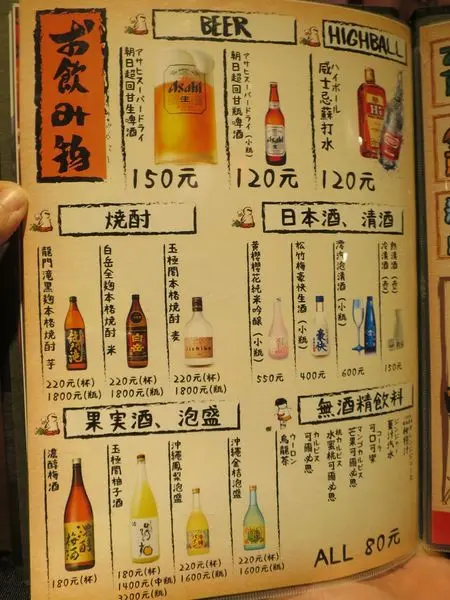 お飲み物
BEER
アサヒスーパードライ
朝日超回甘生啤酒
150元
アサヒスーパードライ(小瓶)
朝日超回甘瓶啤酒
120元
HIGHBALL
ハイボール
威士忌蘇打水
120元
焼酎
龍門滝黒麹本格焼酎 芋
220元(杯)
1800元(瓶)
白岳全麹本格焼酎 米
220元(杯)
1800元(瓶)
玉極閣本格焼酎 麦
220元(杯)
1800元(瓶)
日本酒、清酒
黄櫻櫻花純米吟釀(小瓶)
550元
松竹梅豪快生酒(小瓶)
400元
澪氣泡清酒(小瓶)
600元
冷清酒(壺)
熱清酒(壺)
150元
果実酒、泡盛
濃醇梅酒
180元(杯)
玉極閣柚子酒
180元(杯)
1400元(中瓶)
3200元(瓶)
沖縄鳳梨泡盛
220元(杯)
1600元(瓶)
沖縄金桔泡盛
220元(杯)
1600元(瓶)
無酒精飲料
ジンジャー
薑汁汽水
コーラ
可口可樂
マンゴカルピス
芒果可爾必思
桃カルピス
水蜜桃可爾必思
カルピス
可爾必思
烏龍茶
ALL 80元